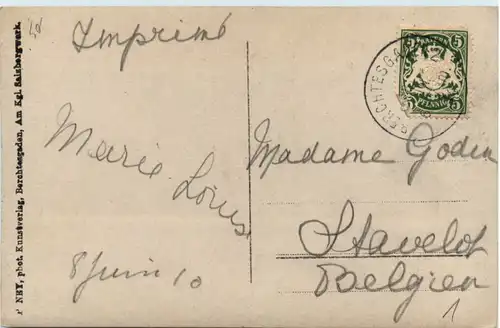 Imprimé
Marie Louis
8 Juin 10
Madame Godin
Stavelot
Belgien
1
BAYERN
5 5
5 PFENNIG 5
BERCHTESGA
NEY, phot. Kunstverlag, Berchtesgaden, Am Kgl. Salzbergwerk.